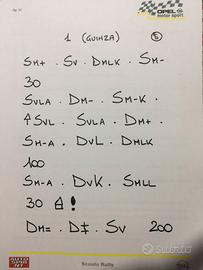 OPEL
motor sport
1 (GUINZA) 5
SM+ . SV . DMLK . SM-
30
SVLA . DM- . SM-K .
SVL . SVLA . DM+ .
SM-A . DVL . DMLK
100
SM-A . DVK . SMLL
30 !
DM= . D‡ . SV 200
Scuola Rally